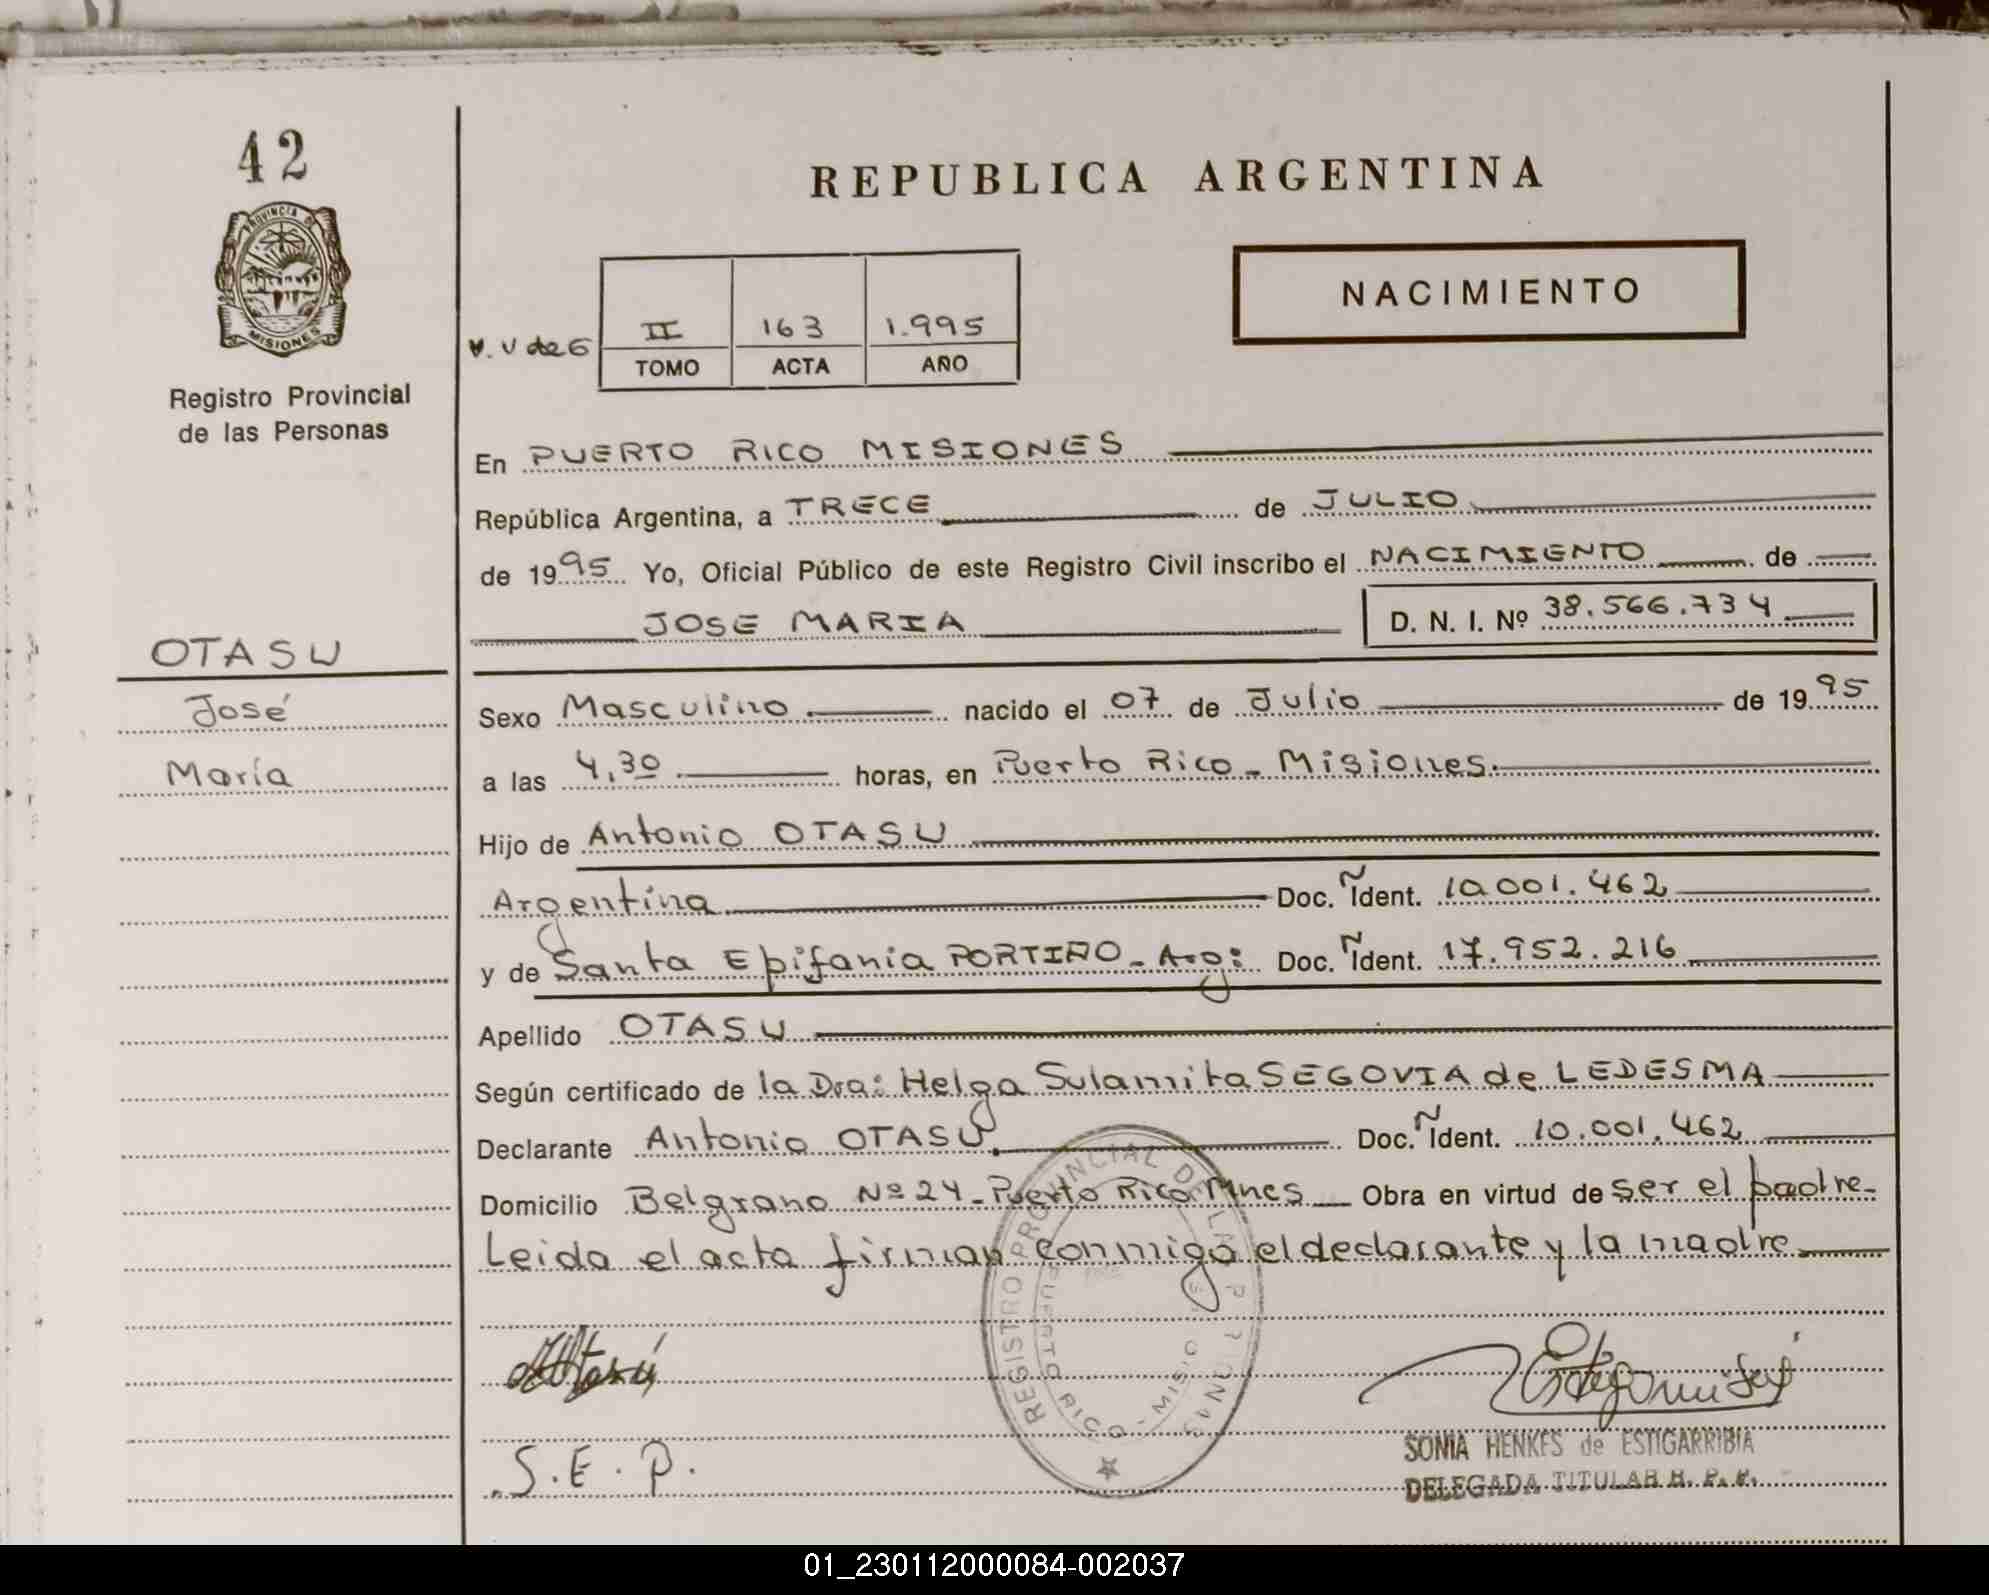 42
REPUBLICA ARGENTINA
PROVINCIA DE MISIONES
NACIMIENTO
V. V de G
II 163 1.995
TOMO ACTA AÑO
Registro Provincial
de las Personas
En PUERTO RICO MISIONES
República Argentina, a TRECE de JULIO
de 1995 Yo, Oficial Público de este Registro Civil inscribo el NACIMIENTO de
JOSE MARIA D. N. I. Nº 38.566.734
OTASU
José
María
Sexo Masculino nacido el 07 de Julio de 1995
a las 4,30 horas, en Puerto Rico - Misiones.
Hijo de Antonio OTASU
Argentina Doc. Ñ Ident. 10.001.462
y de Santa Epifania PORTIÑO - Arg: Doc. Ñ Ident. 17.952.216
Apellido OTASU
Según certificado de la Dra: Helga Sulamita SEGOVIA de LEDESMA
Declarante Antonio OTASU. Doc. Ñ Ident. 10.001.462
Domicilio Belgrano Nº 24 - Puerto Rico Mnes Obra en virtud de ser el padre.
Leida el acta firman conmigo el declarante y la madre
REGISTRO PROVINCIAL DE LAS
PUERTO RICO - MISIO
S. E. P.
SONIA HENKES de ESTIGARRIBIA
DELEGADA TITULAR R. P. P.
01_230112000084-002037